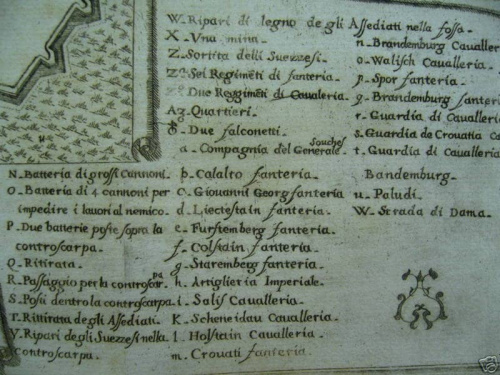 W. Ripari di legno degli Assediati nella fossa
X. Vna mina.
Z. Sortita delli Suezzesi.
Sei Regimēti di fanteria.
Due Reggimēti di Caualeria.
Az. Quartieri.
&. Due falconetti.
a. Compagnia del Generale Souches
b. Calalto fanteria.
c. Giouanni Georg fanteria
d. Liectestain fanteria.
e. Furstemberg fanteria.
f. Colstain fanteria.
g. Staremberg fanteria.
h. Artiglieria Imperiale.
i. Salis Caualleria.
K. Scheneidau Caualleria.
l. Holstain Caualleria.
m. Crouati fanteria.
n. Brandemburg Caualler
o. Walisch Caualleri
p. Spor fanteria.
q. Brandemburg fanter
r. Guardia di Caualler
s. Guardia de Crouatia Ca
t. Guardia di Caualleri
Bandemburg.
u. Paludi.
W. Strada di Dama.
N. Batteria di grossi Cannoni.
O. Batteria di 4 cannoni per
impedire i lauori al nemico.
P. Due batterie poste sopra la
controscarpa.
Q. Ritirata.
R. Passaggio per la controscarpa
S. Posti dentro la controscarpa.
T. Rittirata degli Assediati.
V. Ripari degli Suezzesi nella
controscarpa.